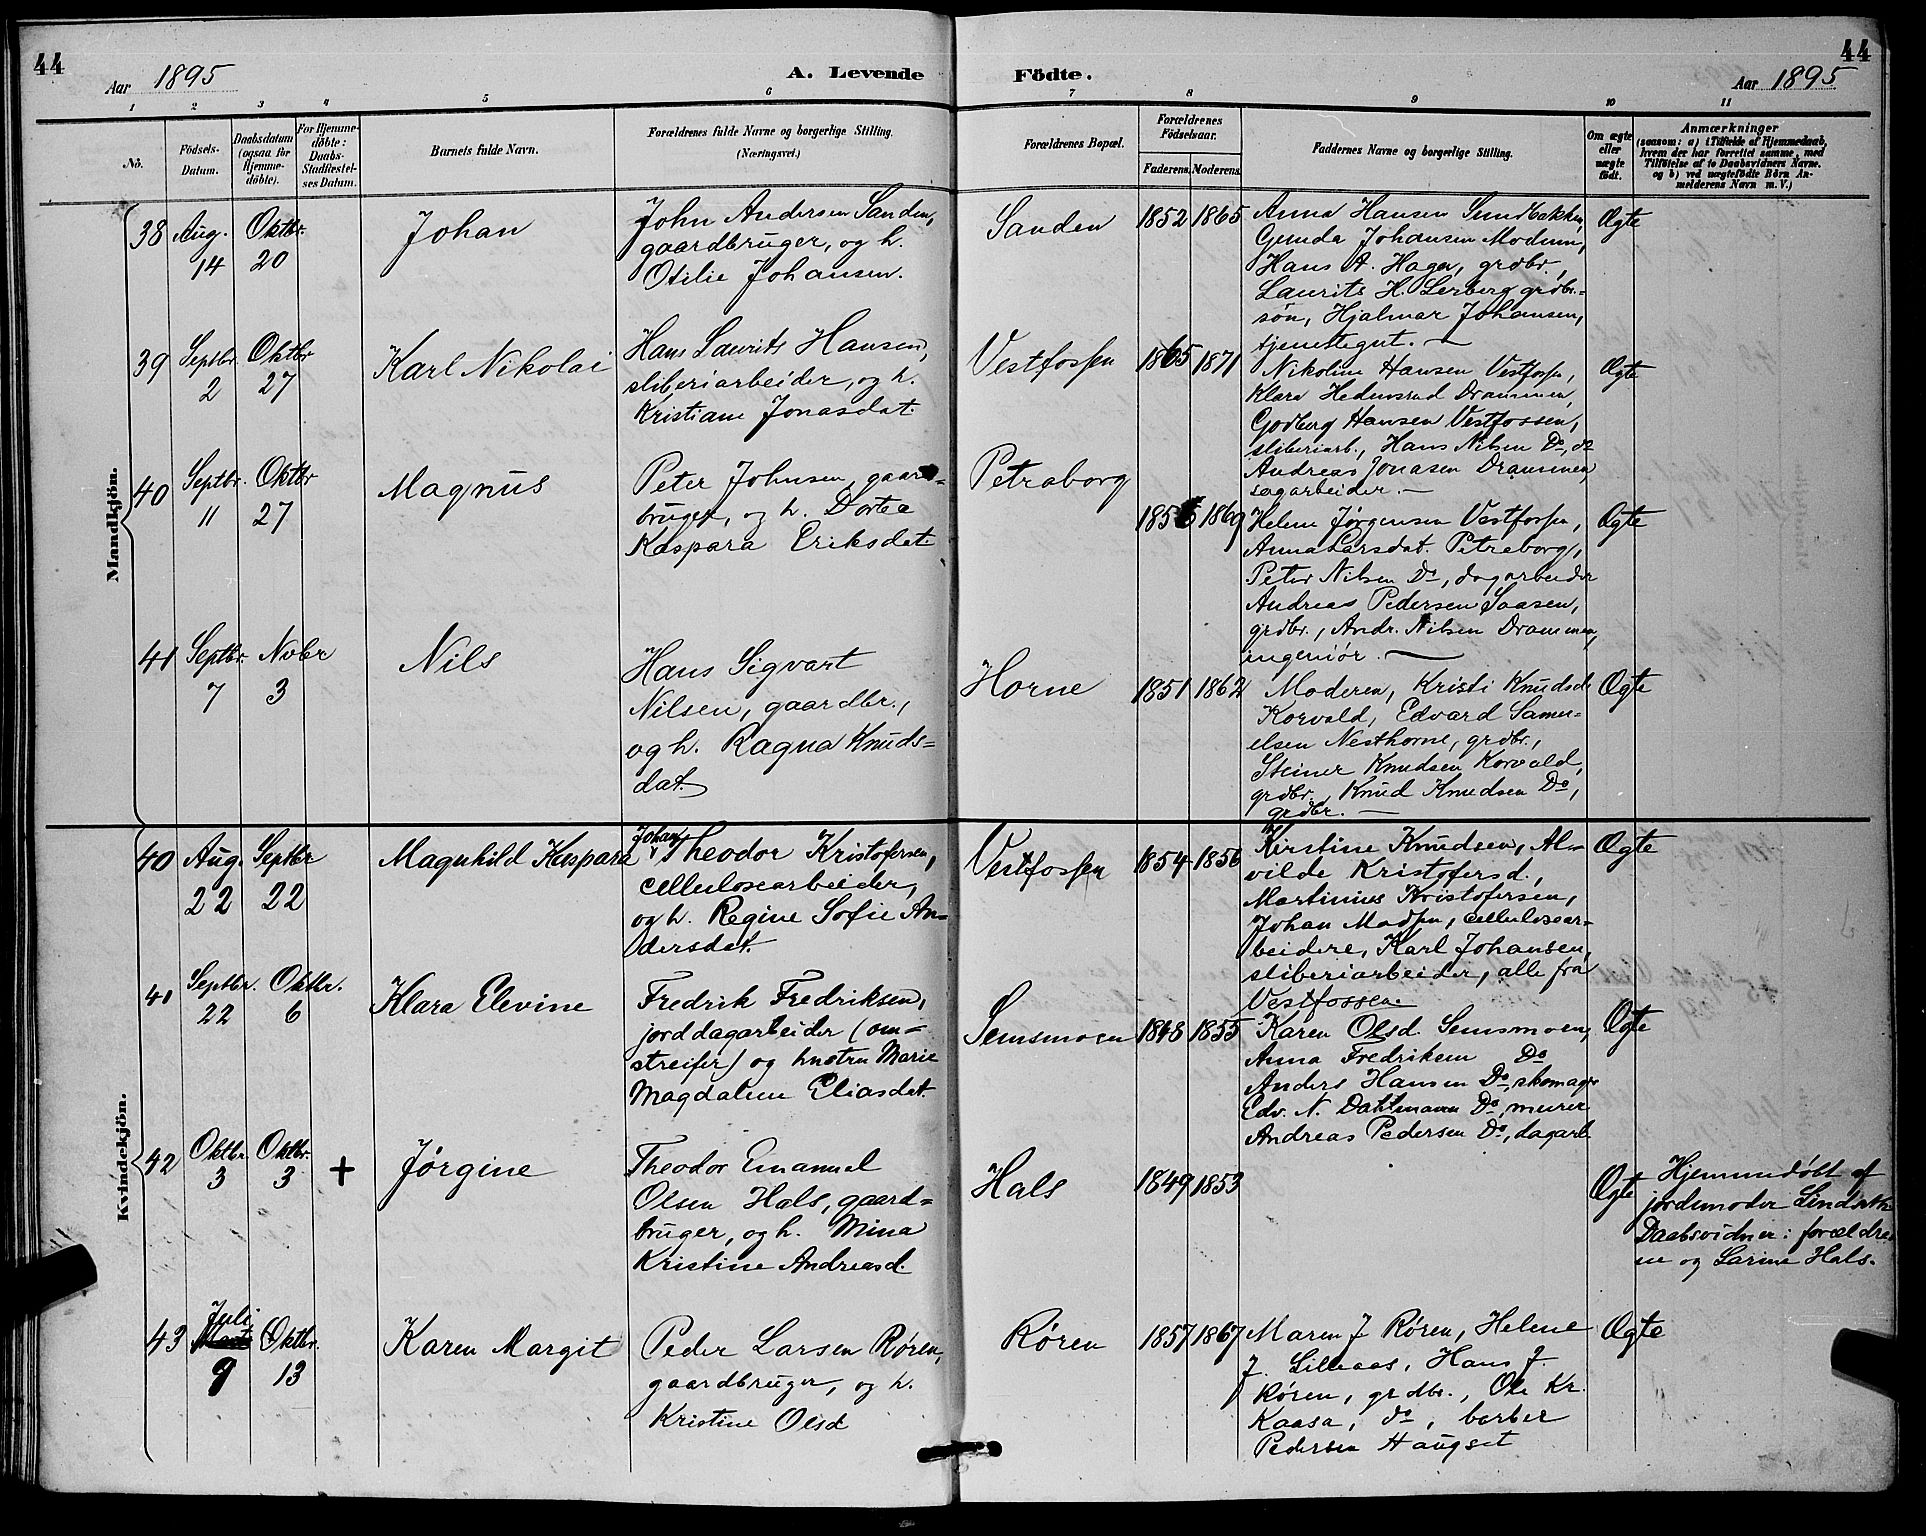 44
Aar 1895
A. Levende
Födte.
Aar 1895
44
1 2 3 4 5 6 7 8 9 10 11
No.
Födsels-
Datum.
Daabsdatum
(ogsaa for
Hjemme-
döbte).
For Hjemme-
döbte:
Daabs-
Stadfæstel-
ses Datum.
Barnets fulde Navn.
Forældrenes fulde Navne og borgerlige Stilling.
(Næringsvei.)
Forældrenes Bopæl.
Forældrenes
Födselsaar.
Faderens. Moderens.
Faddernes Navne og borgerlige Stilling.
Om ægte
eller
uægte
födt.
Anmærkninger
(saasom: a) i Tilfælde af Hjemmedaab,
hvem der har forrettet samme, med
Tilföielse af to Daabsvidners Navne.
og b) ved uægtefödte Börn An-
melderens Navn m. V.)
Mandkjön.
38
Aug.
14
Oktbr.
20
Johan
John Andersen Sanden,
gaardbruger, og h.
Otilie Johansen.
Sanden
1852 1865
Anna Hansen Sundbakken,
Gunda Johansen Modum,
Hans A. Hagen, grdbr.,
Laurits H. Lerberg grdbr.-
søn, Hjalmar Johansen,
tjenestegut. —
Ægte
39
Septbr.
2
Oktbr
27
Karl Nikolai
Hans Laurits Hansen,
sliberiarbeider, og h.
Kristiane Jonasdat.
Vestfossen
1865 1871
Nikoline Hansen Vestfosse,
Klara Hedensrud Drammen,
Godberg Hansen Vestfossen,
sliberiarb., Hans Nilsen Do, do
Andreas Jonasen Drammen,
sagarbeider. —
Ægte
40
Septbr.
11
Oktbr
27
Magnus
Peter Johnsen, gaard-
bruger, og h. Dortea
Kaspara Eriksdat.
Petraborg
1869
Helene Jørgensen Vestfossen,
Anna Larsdat. Petraborg,
Peter Nilsen Do, dagarbeider
Andreas Pedersen Saasen,
grdbr., Andr. Nilsen Drammen,
ingeniør. —
Ægte
41
Septbr.
7
Novbr
3
Nils
Hans Sigvart
Nilsen, gaardbr.,
og h. Ragna Knuds-
dat.
Horne
1851 1862
Moderen, Kristi Knudsd.
Korvald, Edvard Samu-
elsen Nesthorne, grdbr.,
Steiner Knudsen Korvald,
grdbr., Knud Knudsen Do,
grdbr. —
Ægte
Kvindekjön.
40
Aug.
22
Septbr
22
Magnhild Kaspara
Johan
Theodor Kristofersen,
cellulosearbeider,
og h. Regine Sofie An-
dersdat.
Vestfossen
1854 1856
Kirstine Knudsen, Al-
vilde Kristofersd.,
Martinius Kristofersen,
Johan Madsen, cellulosear-
beidere, Karl Johansen,
sliberiarbeider, alle fra
Vestfossen.
Ægte
41
Septbr.
22
Oktbr.
6
Klara Elevine
Fredrik Fredriksen,
jorddagarbeider (om-
streifer) og hustru Marie
Magdalene Eliasdat.
Semsmoen
1848 1855
Karen Olsd. Semsmoen,
Anna Fredriksen Do
Anders Hansen Do, skomager
Edv. N. Dahlmann Do, murer
Andreas Pedersen Do, dagarb.
Ægte
42
Oktbr.
3
Oktbr.
3
+
Jørgine
Theodor Emanuel
Olsen Hals, gaard-
bruger, og h. Mina
Kristine Andreasd.
Hals
1849 1853
Ægte
Hjemmedøbt af
jordemoder
Daabsvidner: forældre
ne og Larine Hals.
43
Juli
9
Oktbr.
13
Karen Margit
Peder Larsen Røren,
gaardbruger, og h.
Kristine Olsd
Røren
1857 1867
Maren J. Røren, Helene
J. Lilleaas, Hans J.
Røren, grdbr., Ole Kr.
Kaasa, do,
Pedersen Haugset
Ægte